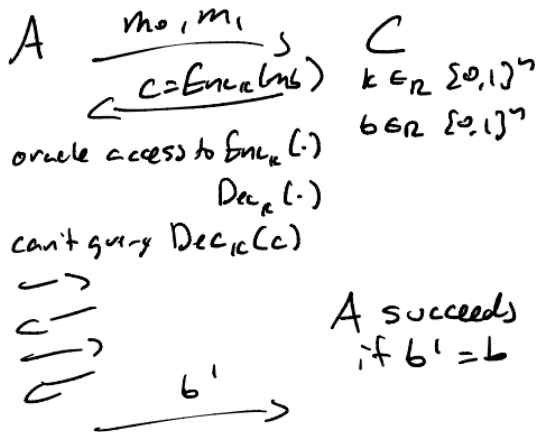 A m₀, m₁ C
c = Enc_k(m_b) k ∈_R {0,1}^n
b ∈_R {0,1}^n
oracle access to Enc_k(·)
Dec_k(·)
can't query Dec_k(c)
A succeeds
if b' = b
b'